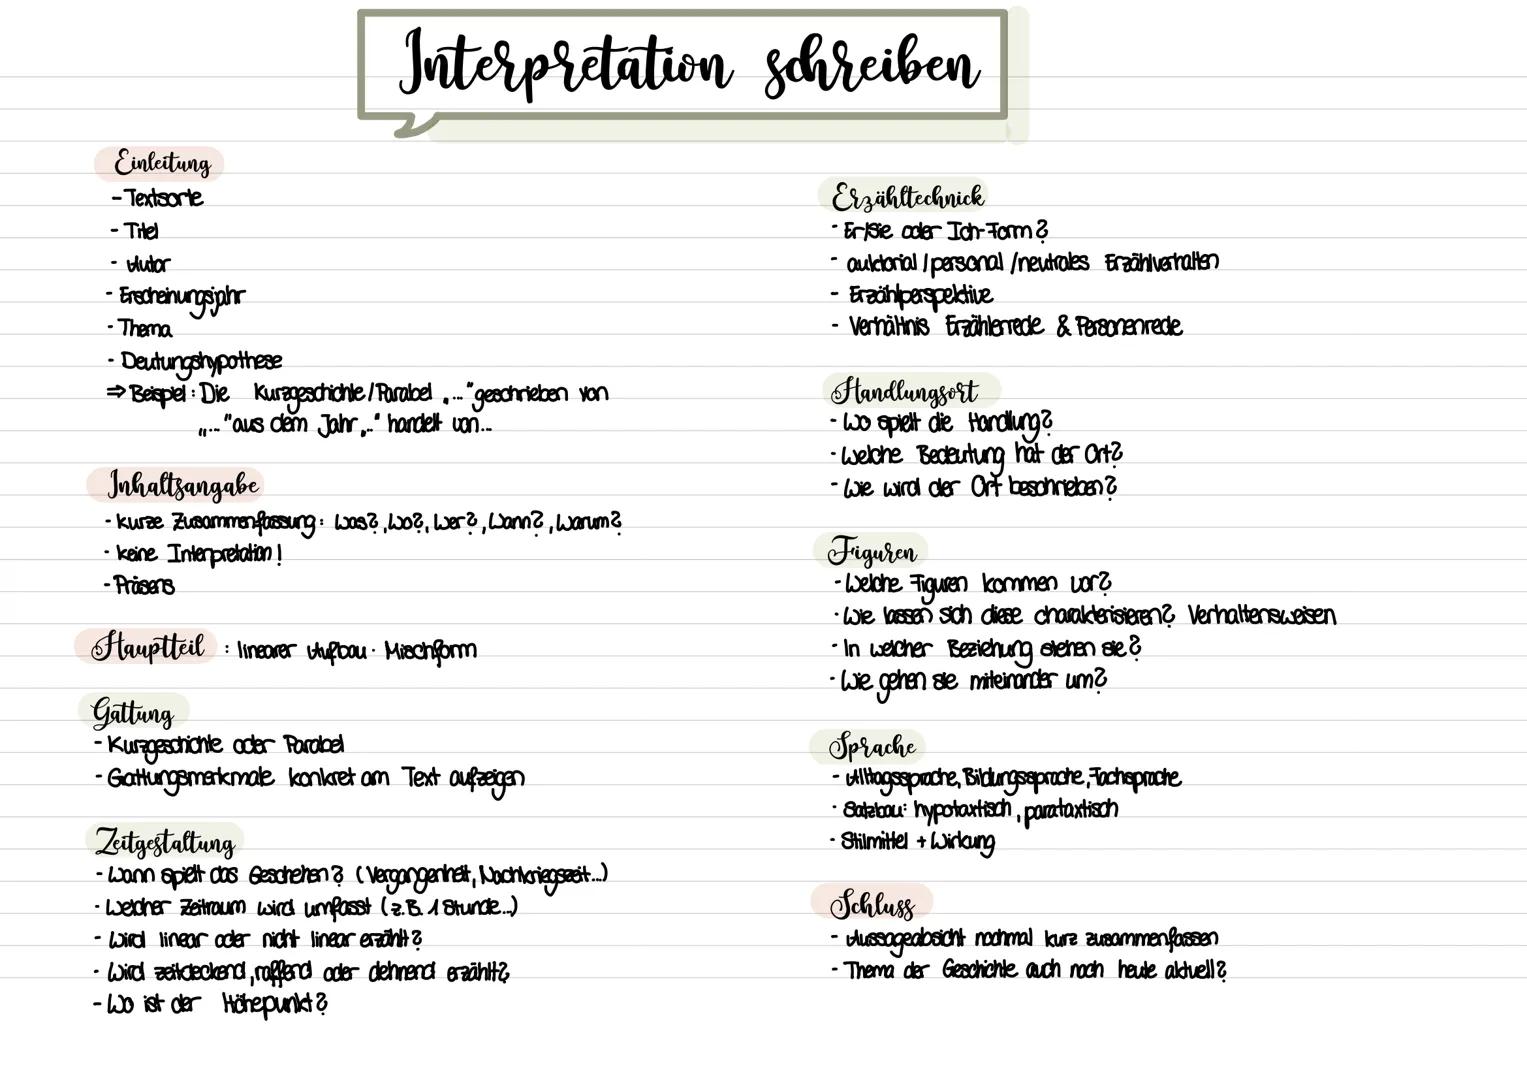 Interpretation schreiben
Einleitung
- Textsorte
- Titel
- Autor
- Erscheinungsjahr
- Thema
- Deutungshypothese
⇒ Beispiel: Die Kurzgeschichte/Parabel „..." geschrieben von
„..." aus dem Jahr „.." handelt von...
Inhaltsangabe
- kurze Zusammenfassung: Was?, Wo?, Wer?, Wann?, Warum?
- keine Interpretation!
- Präsens
Hauptteil : linearer Aufbau · Mischform
Gattung
- Kurzgeschichte oder Parabel
- Gattungsmerkmale konkret am Text aufzeigen
Zeitgestaltung
- Wann spielt das Geschehen? (Vergangenheit, Nachkriegszeit...)
- Welcher Zeitraum wird umfasst (z.B. 1 Stunde...)
- Wird linear oder nicht linear erzählt?
- Wird zeitdeckend, raffend oder dehnend erzählt?
- Wo ist der Höhepunkt?
Erzähltechnick
- Er/Sie oder Ich-Form?
- auktorial / personal / neutrales Erzählverhalten
- Erzählperspektive
- Verhältnis Erzählerrede & Personenrede
Handlungsort
- Wo spielt die Handlung?
- Welche Bedeutung hat der Ort?
- Wie wird der Ort beschrieben?
Figuren
- Welche Figuren kommen vor?
- Wie lassen sich diese charakterisieren? Verhaltensweisen
- In welcher Beziehung stehen sie?
- Wie gehen sie miteinander um?
Sprache
- Alltagssprache, Bildungssprache, Fachsprache
- Satzbau: hypotaxtisch, parataxtisch
- Stilmittel + Wirkung
Schluss
- Aussageabsicht nochmal kurz zusammenfassen
- Thema der Geschichte auch noch heute aktuell?